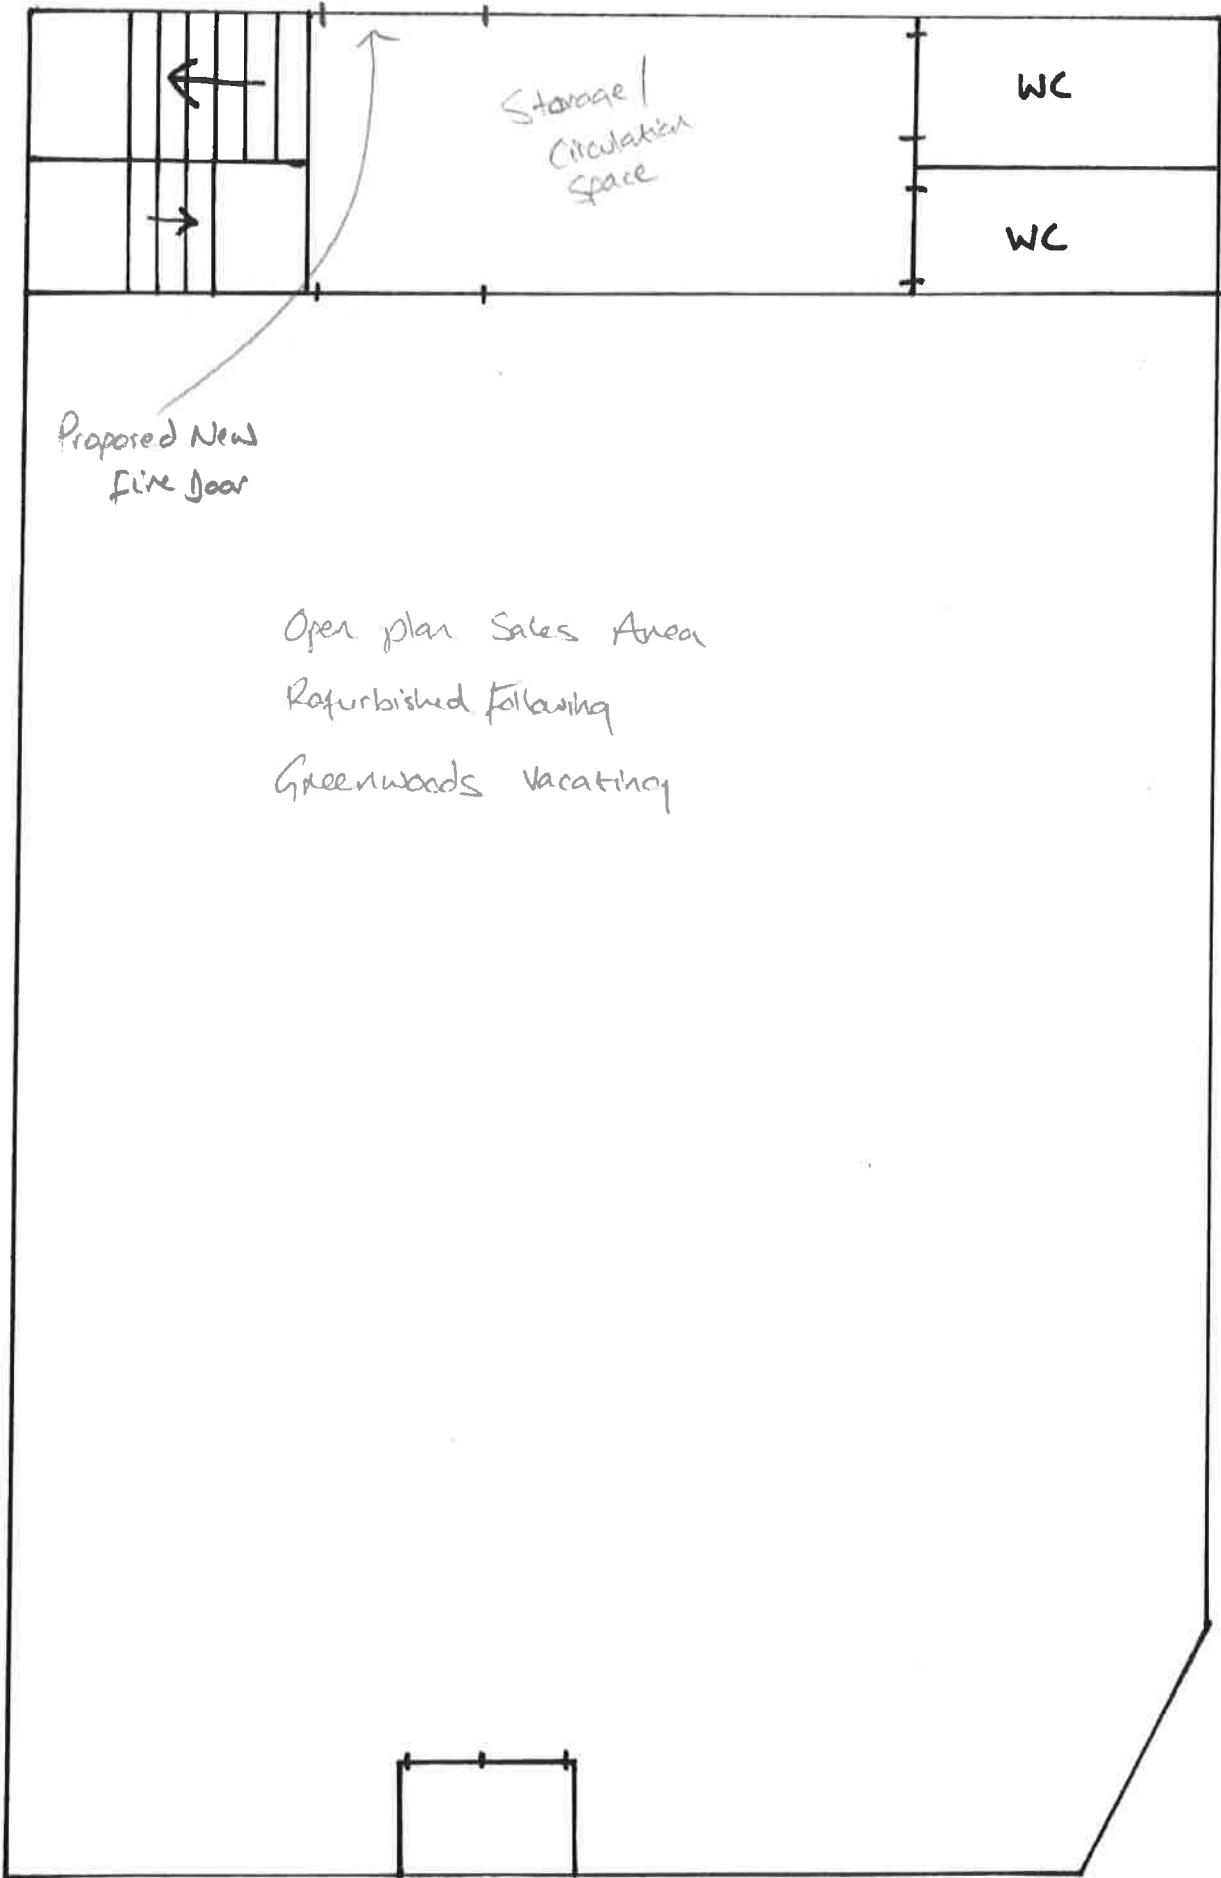 Storage /
Circulation
Space
WC
WC
Proposed New
Fire Door
Open plan Sales Area
Refurbished Following
Greenwoods Vacating